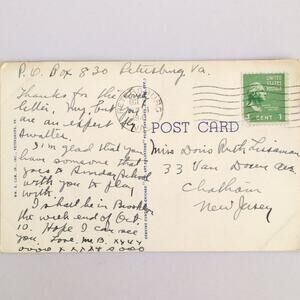 P.O. Box 830 Petersburg Va.
Thanks for the lovely
letter. My, but you
are an expert fly
swatter.
I'm glad that you
have someone that
goes to Sunday School
with you to play
with.
I shall be in Brooklyn
the week end of Oct.
10. Hope I can see
you. Love. Mr. B. xxxx
0000 x xxxx 0000
PETERSBURG
POST CARD
1 CENT 1
Miss Doris Ruth
33 Van Doren Ave
Chatham
New Jersey